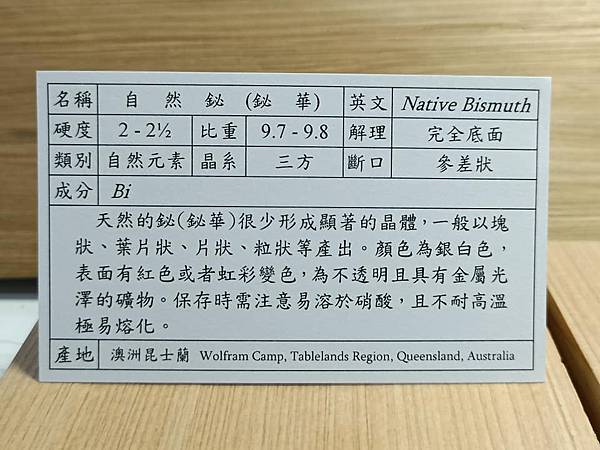 名稱 自然鉍(鉍華) 英文 Native Bismuth
硬度 2 - 2½ 比重 9.7 - 9.8 解理 完全底面
類別 自然元素 晶系 三方 斷口 參差狀
成分 Bi
天然的鉍(鉍華)很少形成顯著的晶體，一般以塊
狀、葉片狀、片狀、粒狀等產出。顏色為銀白色，
表面有紅色或者虹彩變色，為不透明且具有金屬光
澤的礦物。保存時需注意易溶於硝酸，且不耐高溫
極易熔化。
產地 澳洲昆士蘭 Wolfram Camp, Tablelands Region, Queensland, Australia